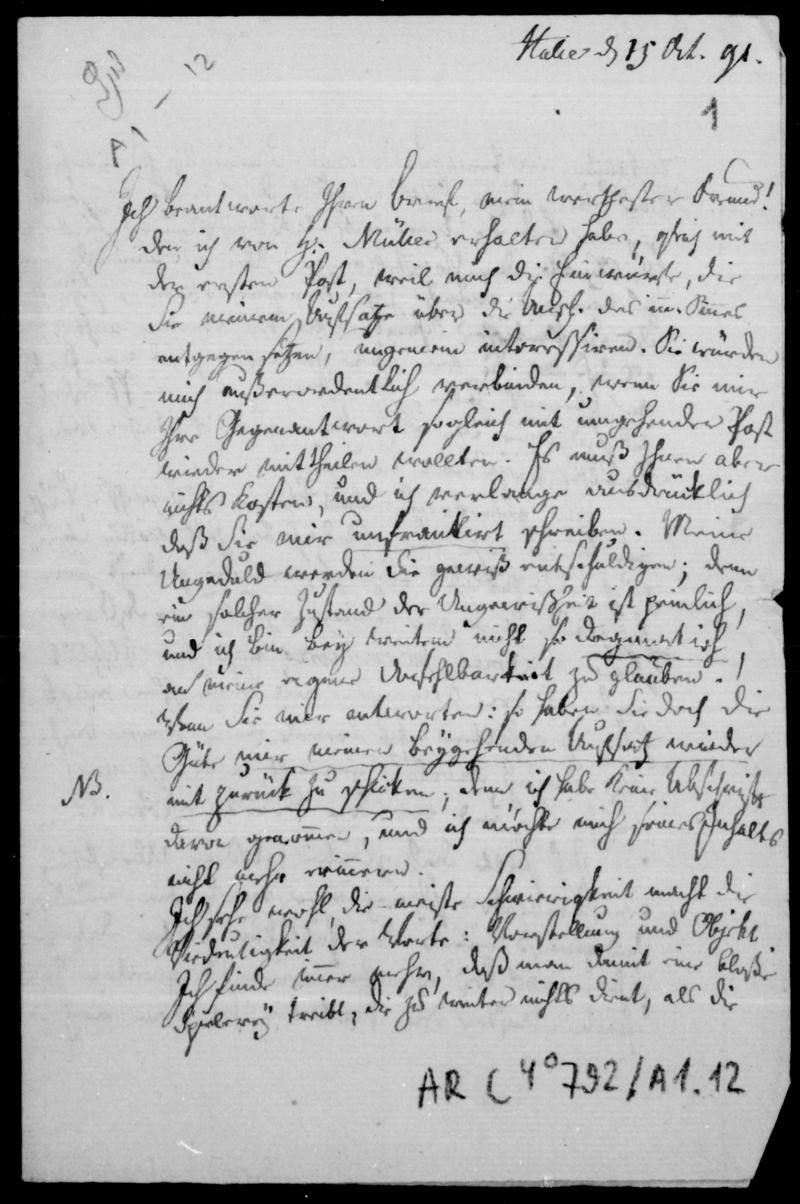 Halle d 15 Oct. 91.
1
A 1 - 12
Ich beantworte Ihren Brief, mein werthester Freund!
den ich von H. Müller erhalten habe, gleich mit
der ersten Post, weil mich die Einwürfe, die
Sie meinem Aufsatze über die Ansch. des inn. Sinnes
entgegen setzen, ungemein interessiren. Sie würden
mich außerordentlich verbinden, wenn Sie mir
Ihre Gegenantwort sogleich mit umgehender Post
wieder mittheilen wollten. Es muß Ihnen aber
nichts kosten, und ich verlange ausdrücklich
daß Sie mir unfrankirt schreiben. Meine
Ungeduld werden Sie gewiß entschuldigen; denn
ein solcher Zustand der Ungewißheit ist peinlich,
und ich bin bey weitem nicht so dogmatisch
an meine eigene Unfehlbarkeit zu glauben.!
Wenn Sie mir antworten: so haben Sie doch die
Güte mir meinen beygehenden Aufsatz wieder
NB. mit zurück zu schicken; denn ich habe keine Abschrift
davon genommen, und ich möchte mich seines Inhalts
nicht mehr erinnern.
Ich sehe wohl, die meiste Schwierigkeit macht die
Zweideutigkeit der Worte: Vorstellung und Objekt
Ich finde immer mehr, daß man damit eine bloße
Spielerey treibt, die zu weiter nichts dient, als die
AR C 4° 792/A1.12